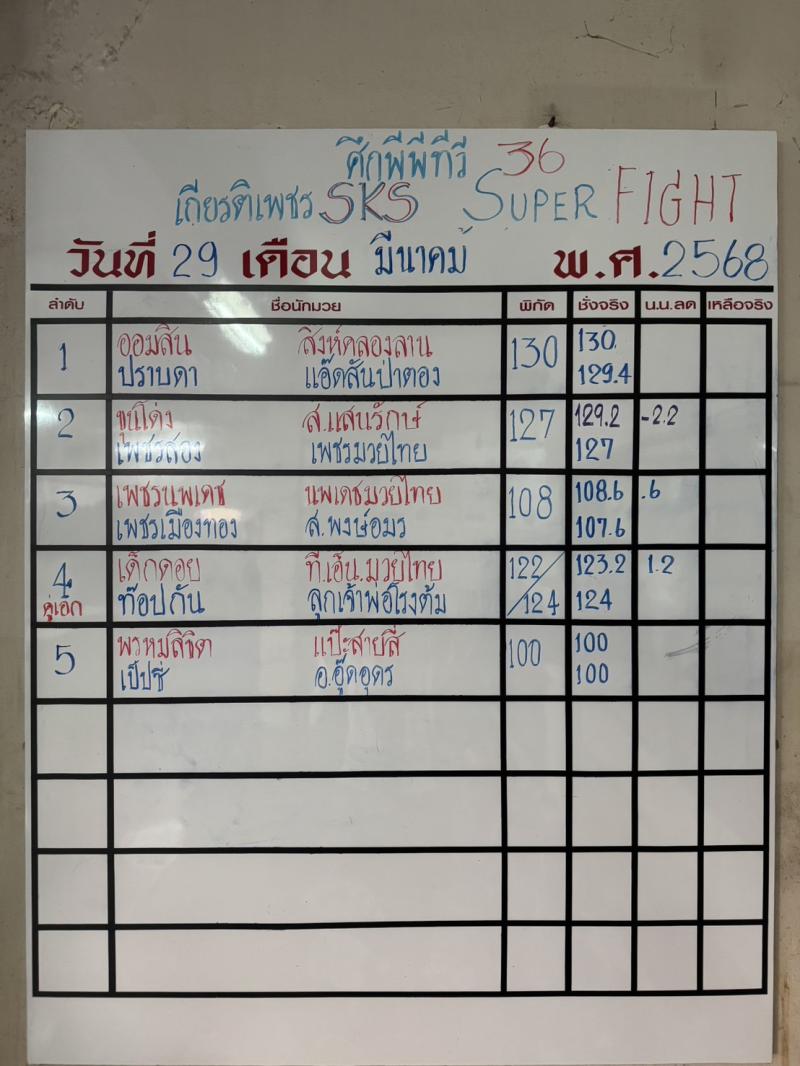 ศึกพีพีทีวี 36
เกียรติเพชร SKS SUPER FIGHT
วันที่ 29 เดือน มีนาคม พ.ศ. 2568
ลำดับ ชื่อนักมวย พิกัด ชั่งจริง น.น.ลด เหลือจริง
1 ออมสิน สิงห์คลองลาน 130 130
ปราบดา แอ๊ดสันป่าตอง 129.4
2 ขุนโด่ง ส.แสนรักษ์ 127 129.2 -2.2
เพชรสอง เพชรมวยไทย 127
3 เพชรนพเดช นพเดชมวยไทย 108 108.6 .6
เพชรเมืองทอง ส.พงษ์อมร 107.6
4 เด็กดอย ที.เอ็น.มวยไทย 122/ 123.2 1.2
คู่เอก ท๊อปกัน ลูกเจ้าพ่อโรงต้ม /124 124
5 พรหมลิขิต แป๊ะสายสี่ 100 100
เป็ปซี่ อ.อู๊ดอุดร 100